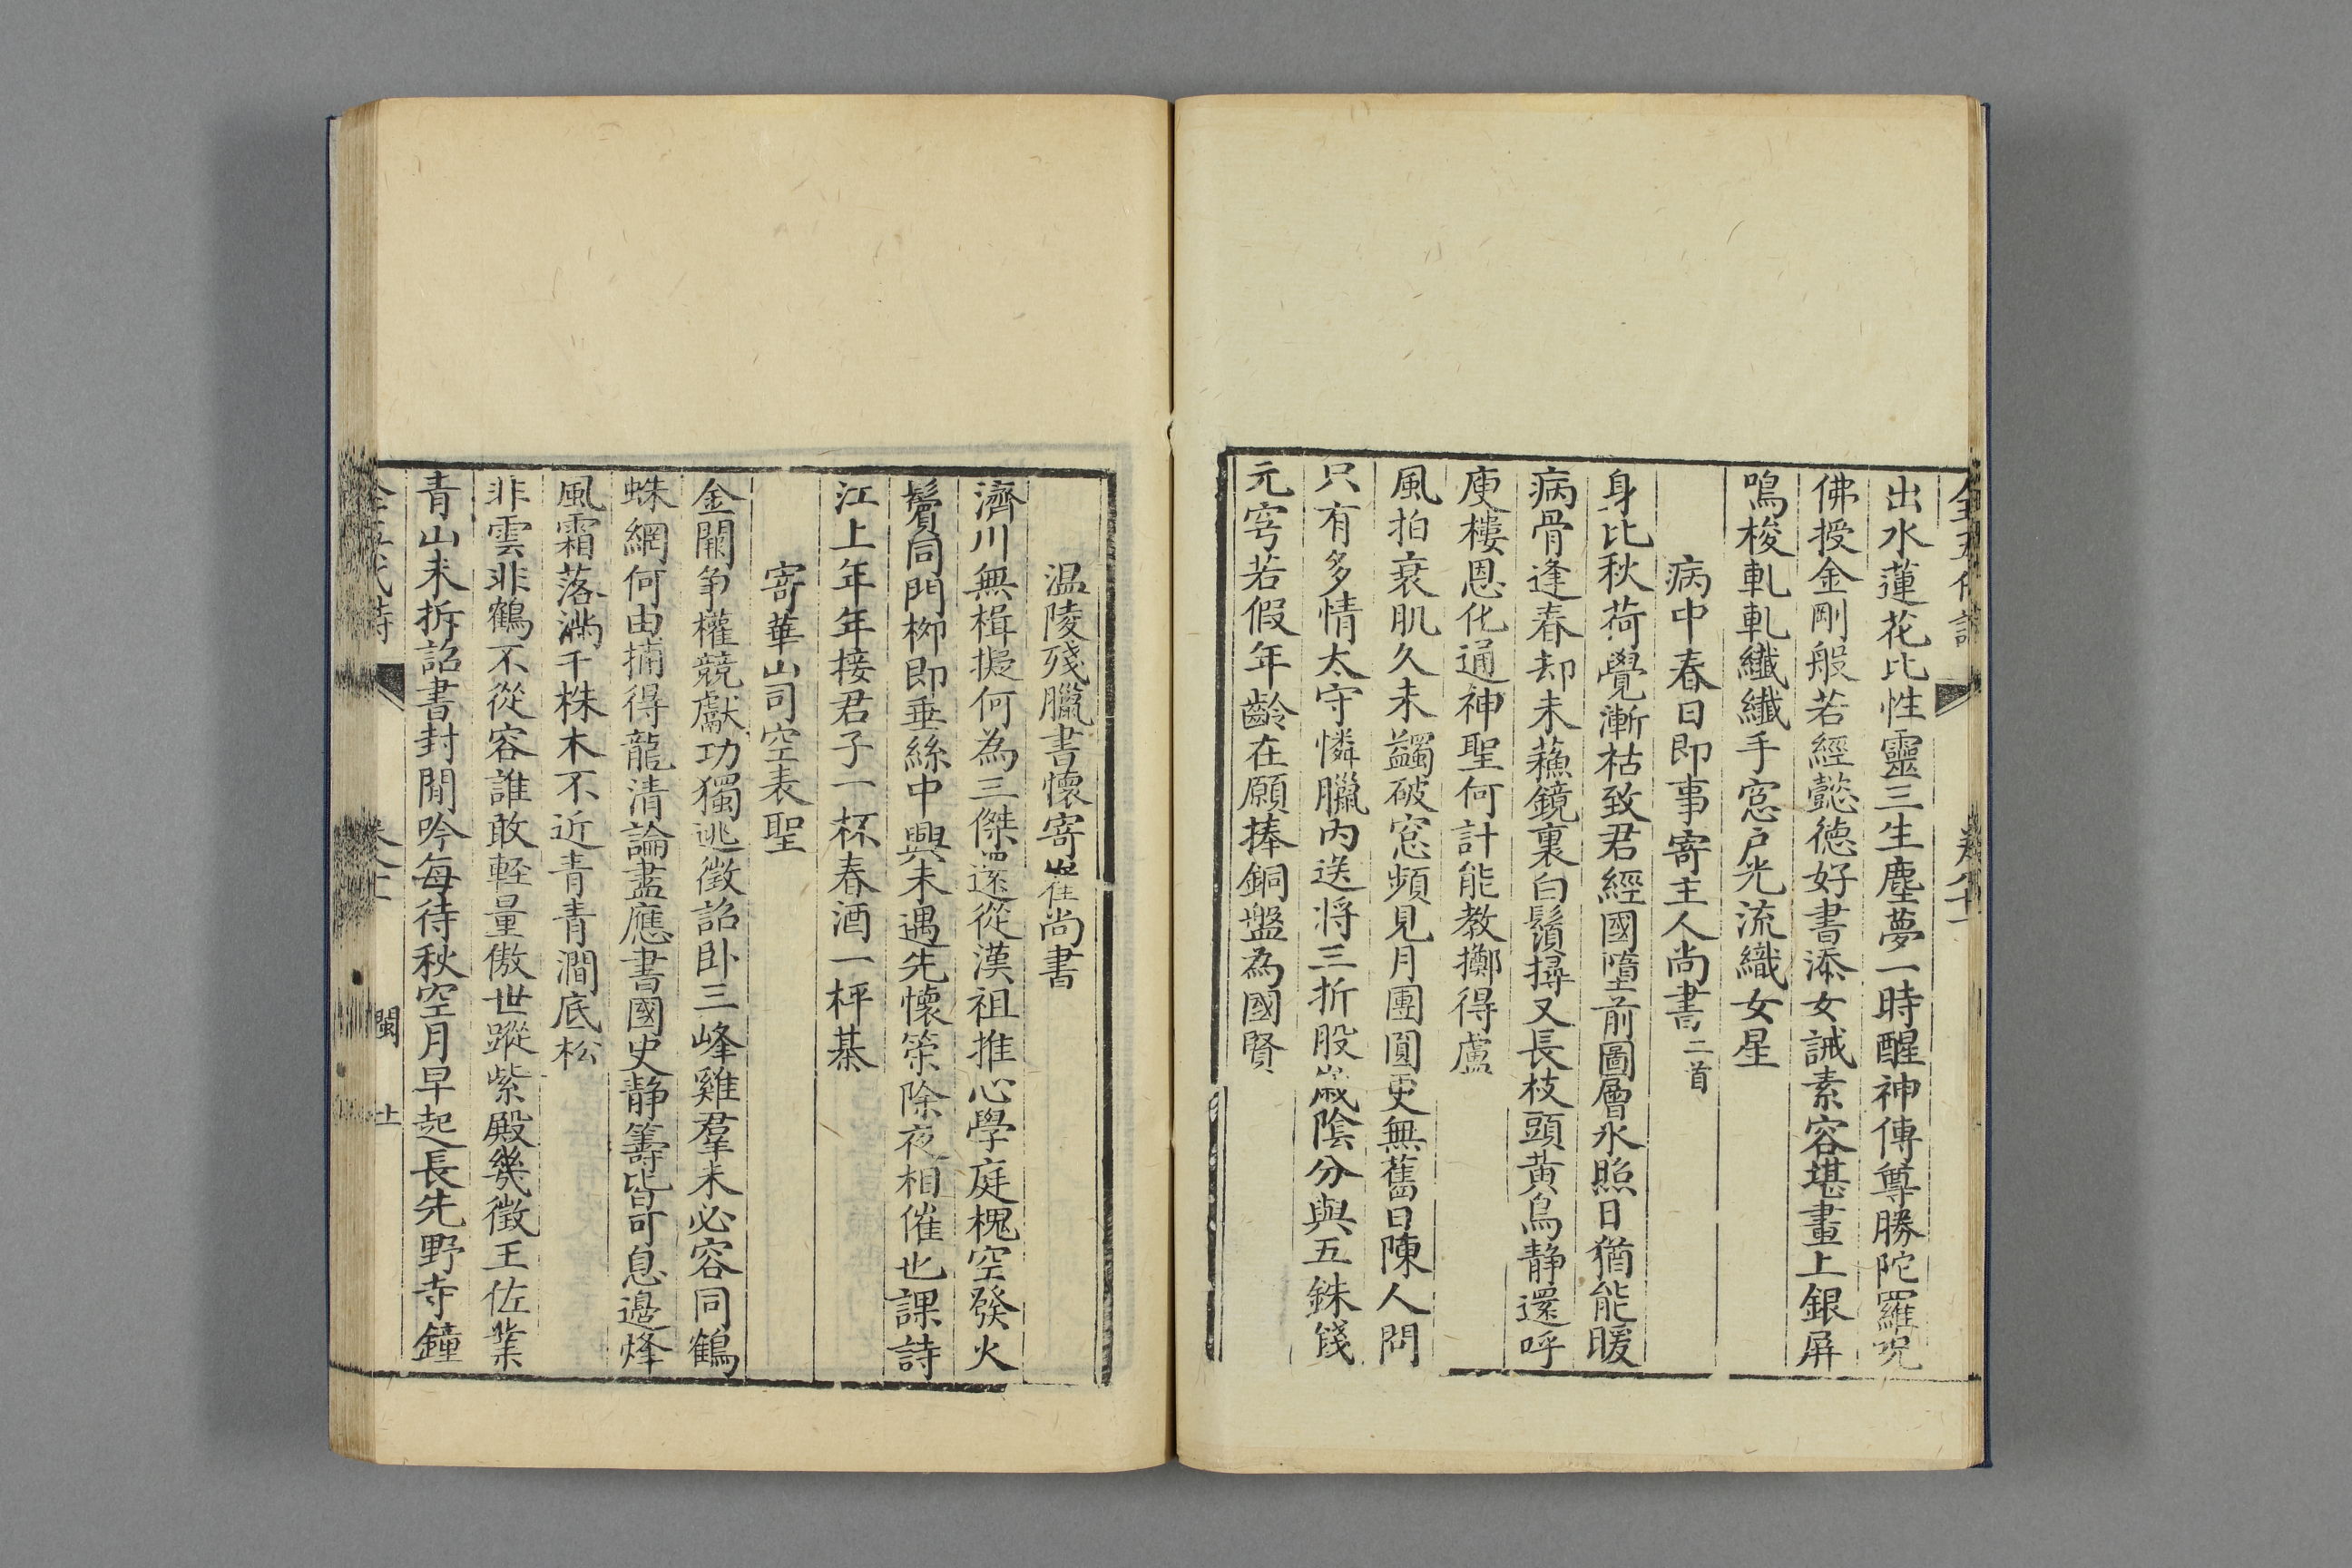 出水蓮花比性靈三生塵夢一時醒神傳尊勝陀羅呪
佛授金剛般若經懿德好書添女誡素容堪畫上銀屏
鳴梭軋軋纖纖手窓户光流織女星
病中春日即事寄主人尚書二首
身比秋荷覺漸枯致君經國墮前圖層氷照日猶能暖
病骨逢春却未蘓鏡裏白鬚撏又長枝頭黄鳥静還呼
庾樓恩化通神聖何計能教擲得盧
風拍衰肌久未蠲破窓頻見月團圓更無舊日陳人問
只有多情太守憐臘内送將三折股歳陰分與五銖錢
元穹若假年齡在願捧銅盤為國賢
温陵殘臘書懷寄崔尚書
濟川無楫擬何為三傑還從漢祖推心學庭槐空發火
鬢同門栁即垂絲中興未遇先懷策除夜相催也課詩
江上年年接君子一杯春酒一枰棊
寄華山司空表聖
金闕爭權競獻功獨逃徵詔卧三峰雞羣未必容同鶴
蛛網何由捕得龍清論盡應書國史静籌皆可息邊烽
風霜落满千株木不近青青澗底松
非雲非鶴不從容誰敢輕量傲世蹤紫殿幾徵王佐業
青山未拆詔書封閒吟每待秋空月早起長先野寺鐘
閩